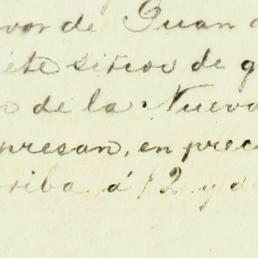 vor de Juan
siete sitios de g
o de la Nueva
presan, en prec
riba á 12 y d